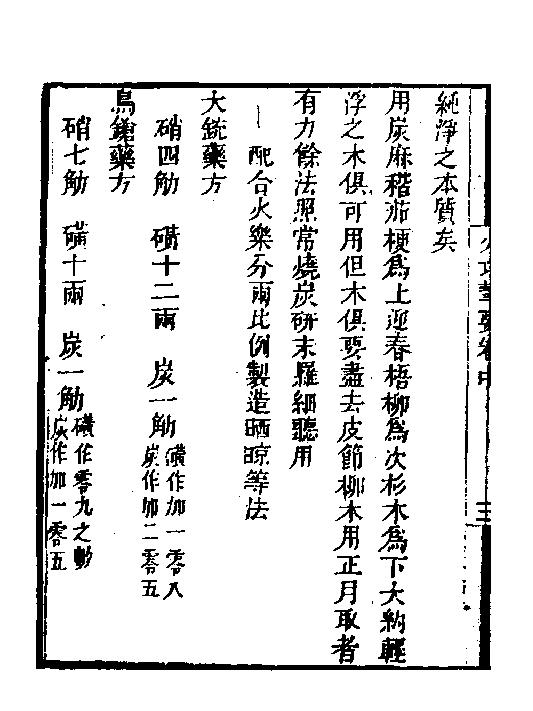 純淨之本質矣
用炭麻稭茄梗為上迎春梧柳為次杉木為下大約輕
浮之木俱可用但木俱要盡去皮節柳木用正月取者
有力餘法照常燒炭研末羅細聽用
一 配合火藥分兩比例製造晒晾等法
大銃藥方
硝四觔 磺十二兩 炭一觔 磺作加一零八 炭作加二零五
鳥鎗藥方
硝七觔 磺十兩 炭一觔 磺作零九之數 炭作加一零五